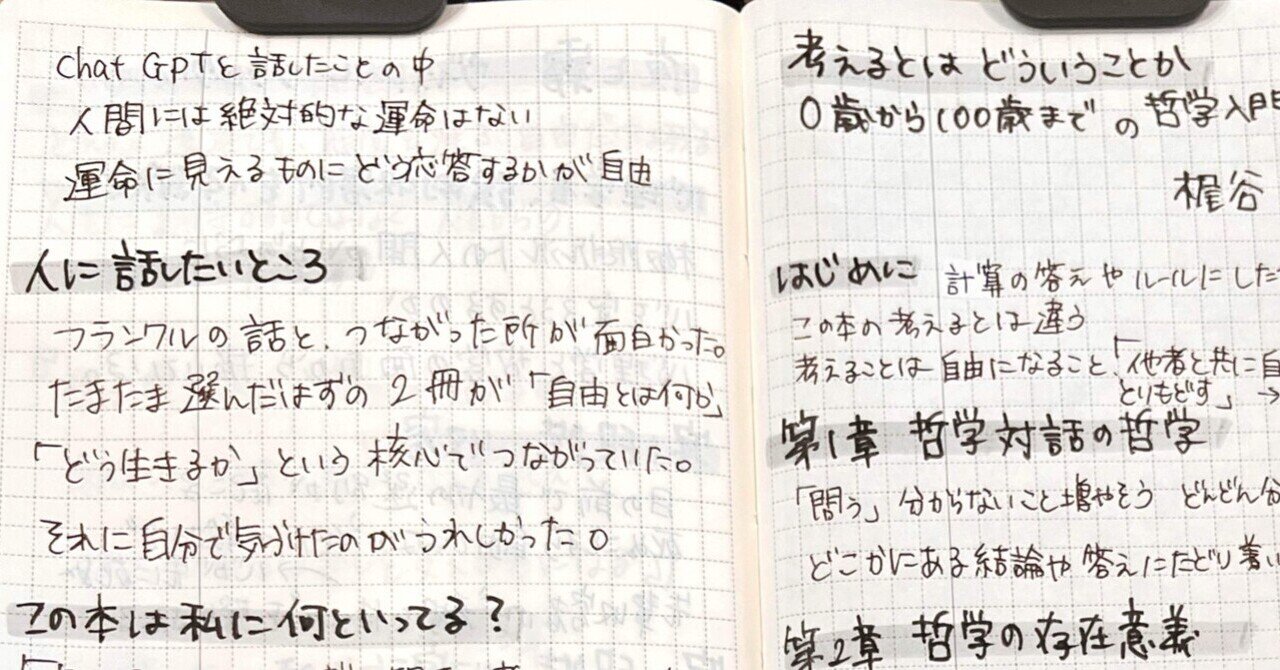 chat GPTと話したことの中
人間には絶対的な運命はない
運命に見えるものにどう応答するかが自由
人に話したいところ
フランクルの話と、つながった所が面白かった。
たまたま選んだはずの2冊が「自由とは何か」
「どう生きるか」という核心でつながっていた。
それに自分で気づけたのがうれしかった。
この本は私に何といってる?
考えるとは どういうことか
0歳から100歳までの哲学入門
梶谷
はじめに 計算の答えやルールにした
この本の考えるとは違う
考えることは自由になること「他者と共に自
とりもどす」→
第1章 哲学対話の哲学
「問う」分からないこと増やそう どんどん分
どこかにある結論や答えにたどり着い
第2章 哲学の存在意義